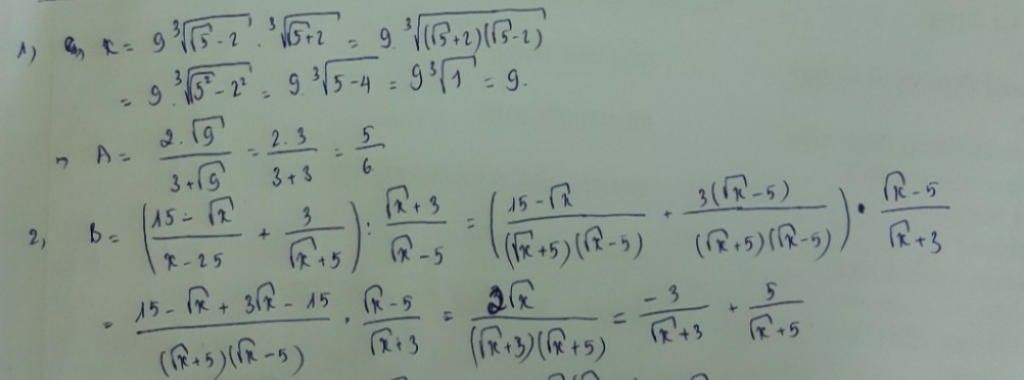 1, a, x = 9∛(√5 - 2) . ∛(√5+2) = 9.∛((√5+2)(√5-2))
= 9.∛(√5² - 2²) = 9.∛(5-4) = 9∛1 = 9.
⇒ A = (2.√9)/(3+√9) = (2.3)/(3+3) = 5/6
2, B = ((15-√x)/(x-25) + 3/(√x+5)) : (√x+3)/(√x-5) = ((15-√x)/((√x+5)(√x-5)) + (3(√x-5))/((√x+5)(√x-5))) . (√x-5)/(√x+3)
= (15-√x+3√x-15)/((√x+5)(√x-5)) . (√x-5)/(√x+3) = (2√x)/((√x+3)(√x+5)) = (-3)/(√x+3) + 5/(√x+5)